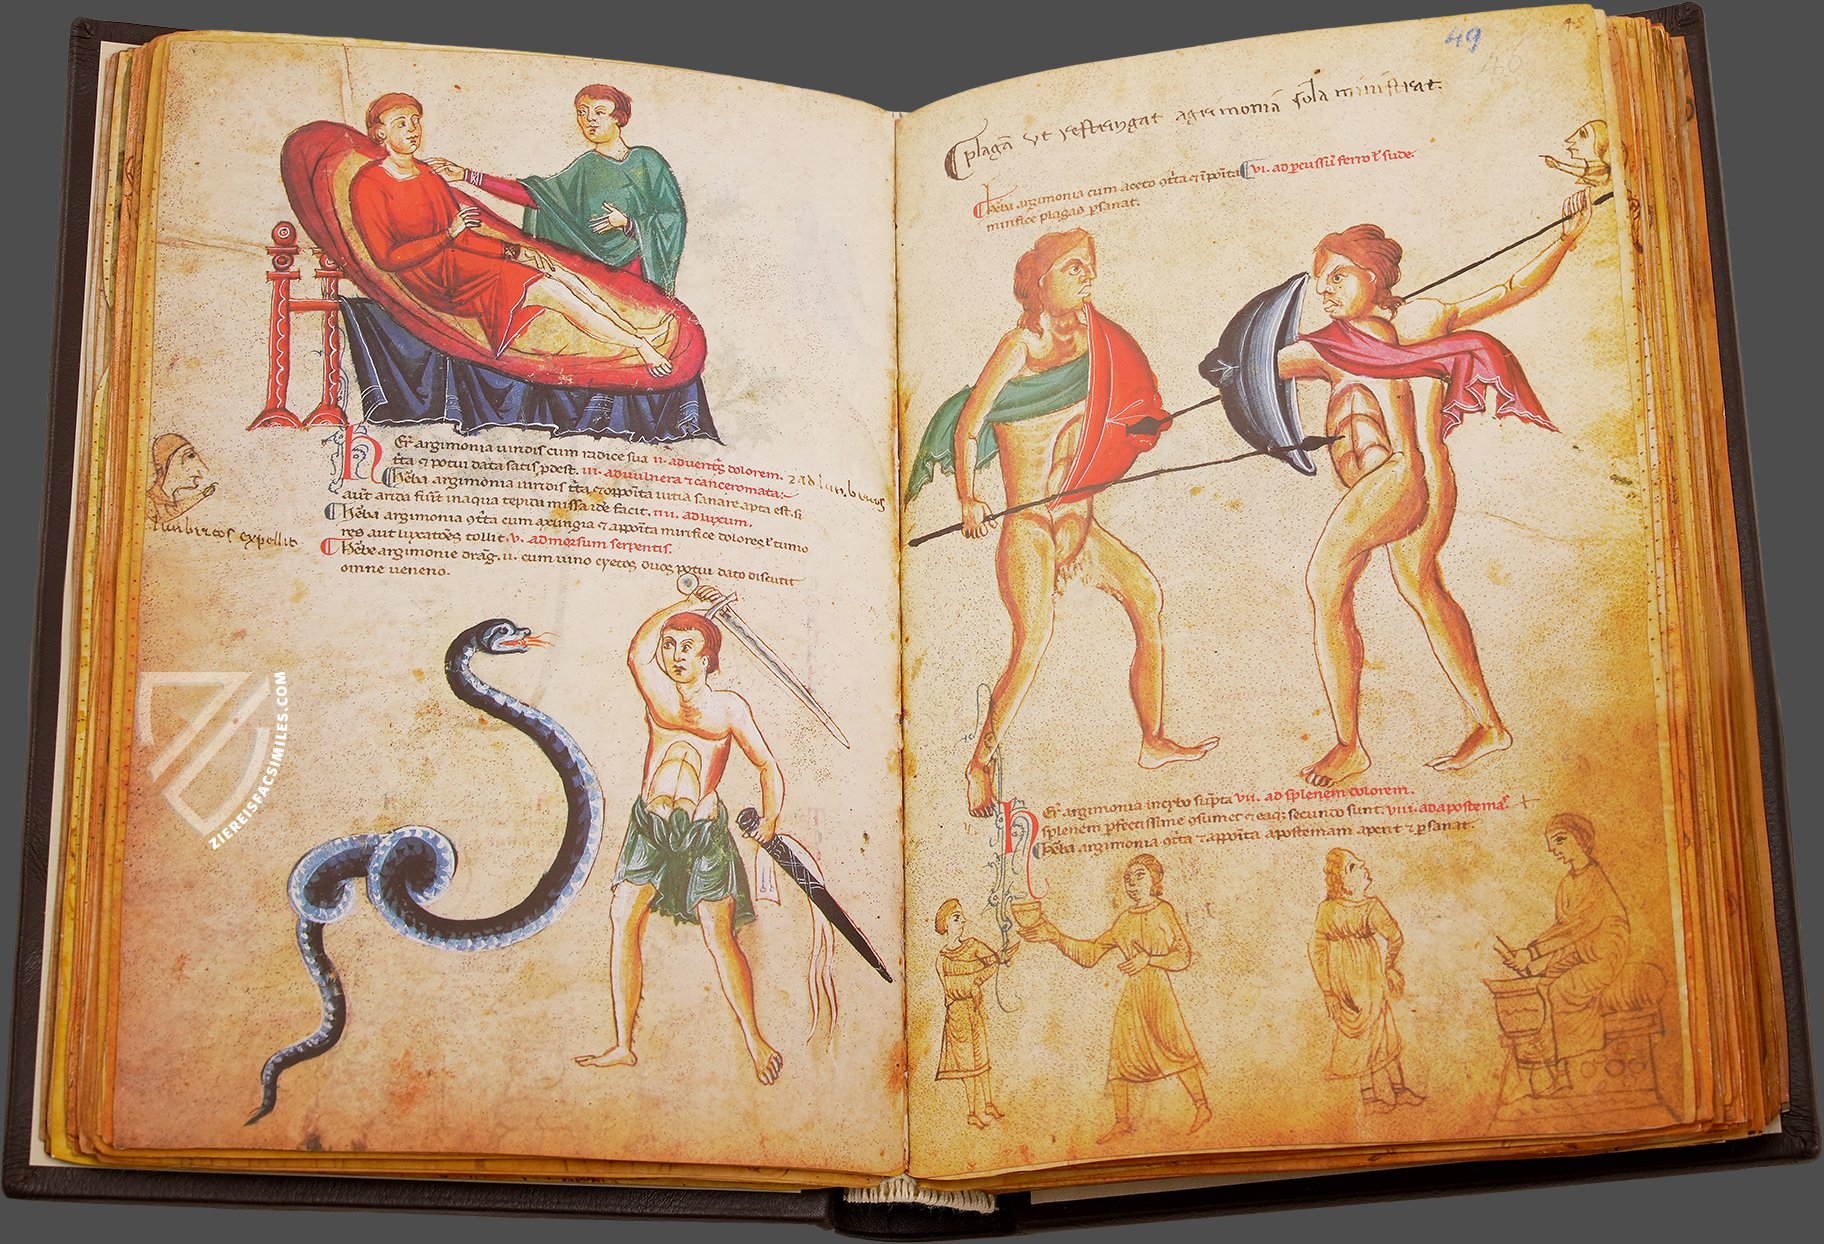 Er argimonia uiridis cum radice sua ii. ad uentris dolorem. 2 ad lumbricos
t̄ta ⁊ potui data satis p̄dest. iii. ad uulnera ⁊ canceromata:
Ꞓ hēba argimonia uiridis t̄ta ⁊ apposita uitia sanare apta est. si
aut arida fuīt in aqua tepida missa idē facit. iiii. ad luxum.
Ꞓ hēba argimonia 9t̄ta cum axungia ⁊ apposita mirifice dolores ł tumo
res aut luxatiōes tollit. v. ad morsum serpentis.
Ꞓ hēbe argimonie drag. ii. cum uino duos potui dato discutit
omne ueneno.
lumbricos expellit
ZIEREISFACSIMILES.COM
49
46
Ꞓ plagā ut restringat agrimoniā sola ministrat.
Ꞓ hēba argimonia cum aceto 9t̄ta ⁊ īpōita Ꞓ vi. ad p̱cussū ferro ł sude.
mirifice plagas p̱sanat.
h Er argimonia in sūpta vii. ad splenem dolorem.
splenem p̱fectissime 9sumet ⁊ secundo sunt. viii. ad apostema
Ꞓ hēba argimonia 9t̄ta ⁊ appōita apostemam aperit ⁊ p̱sanat.